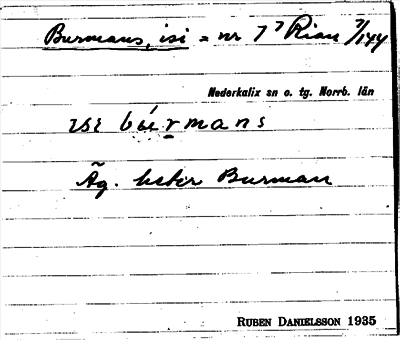 Burmans, isi = nr 7⁷ Rian 7/144
Nederkalix sn o. tg. Norrb. län
ɪsɪ búrmans
Äg. heter Burman
RUBEN DANIELSSON 1935